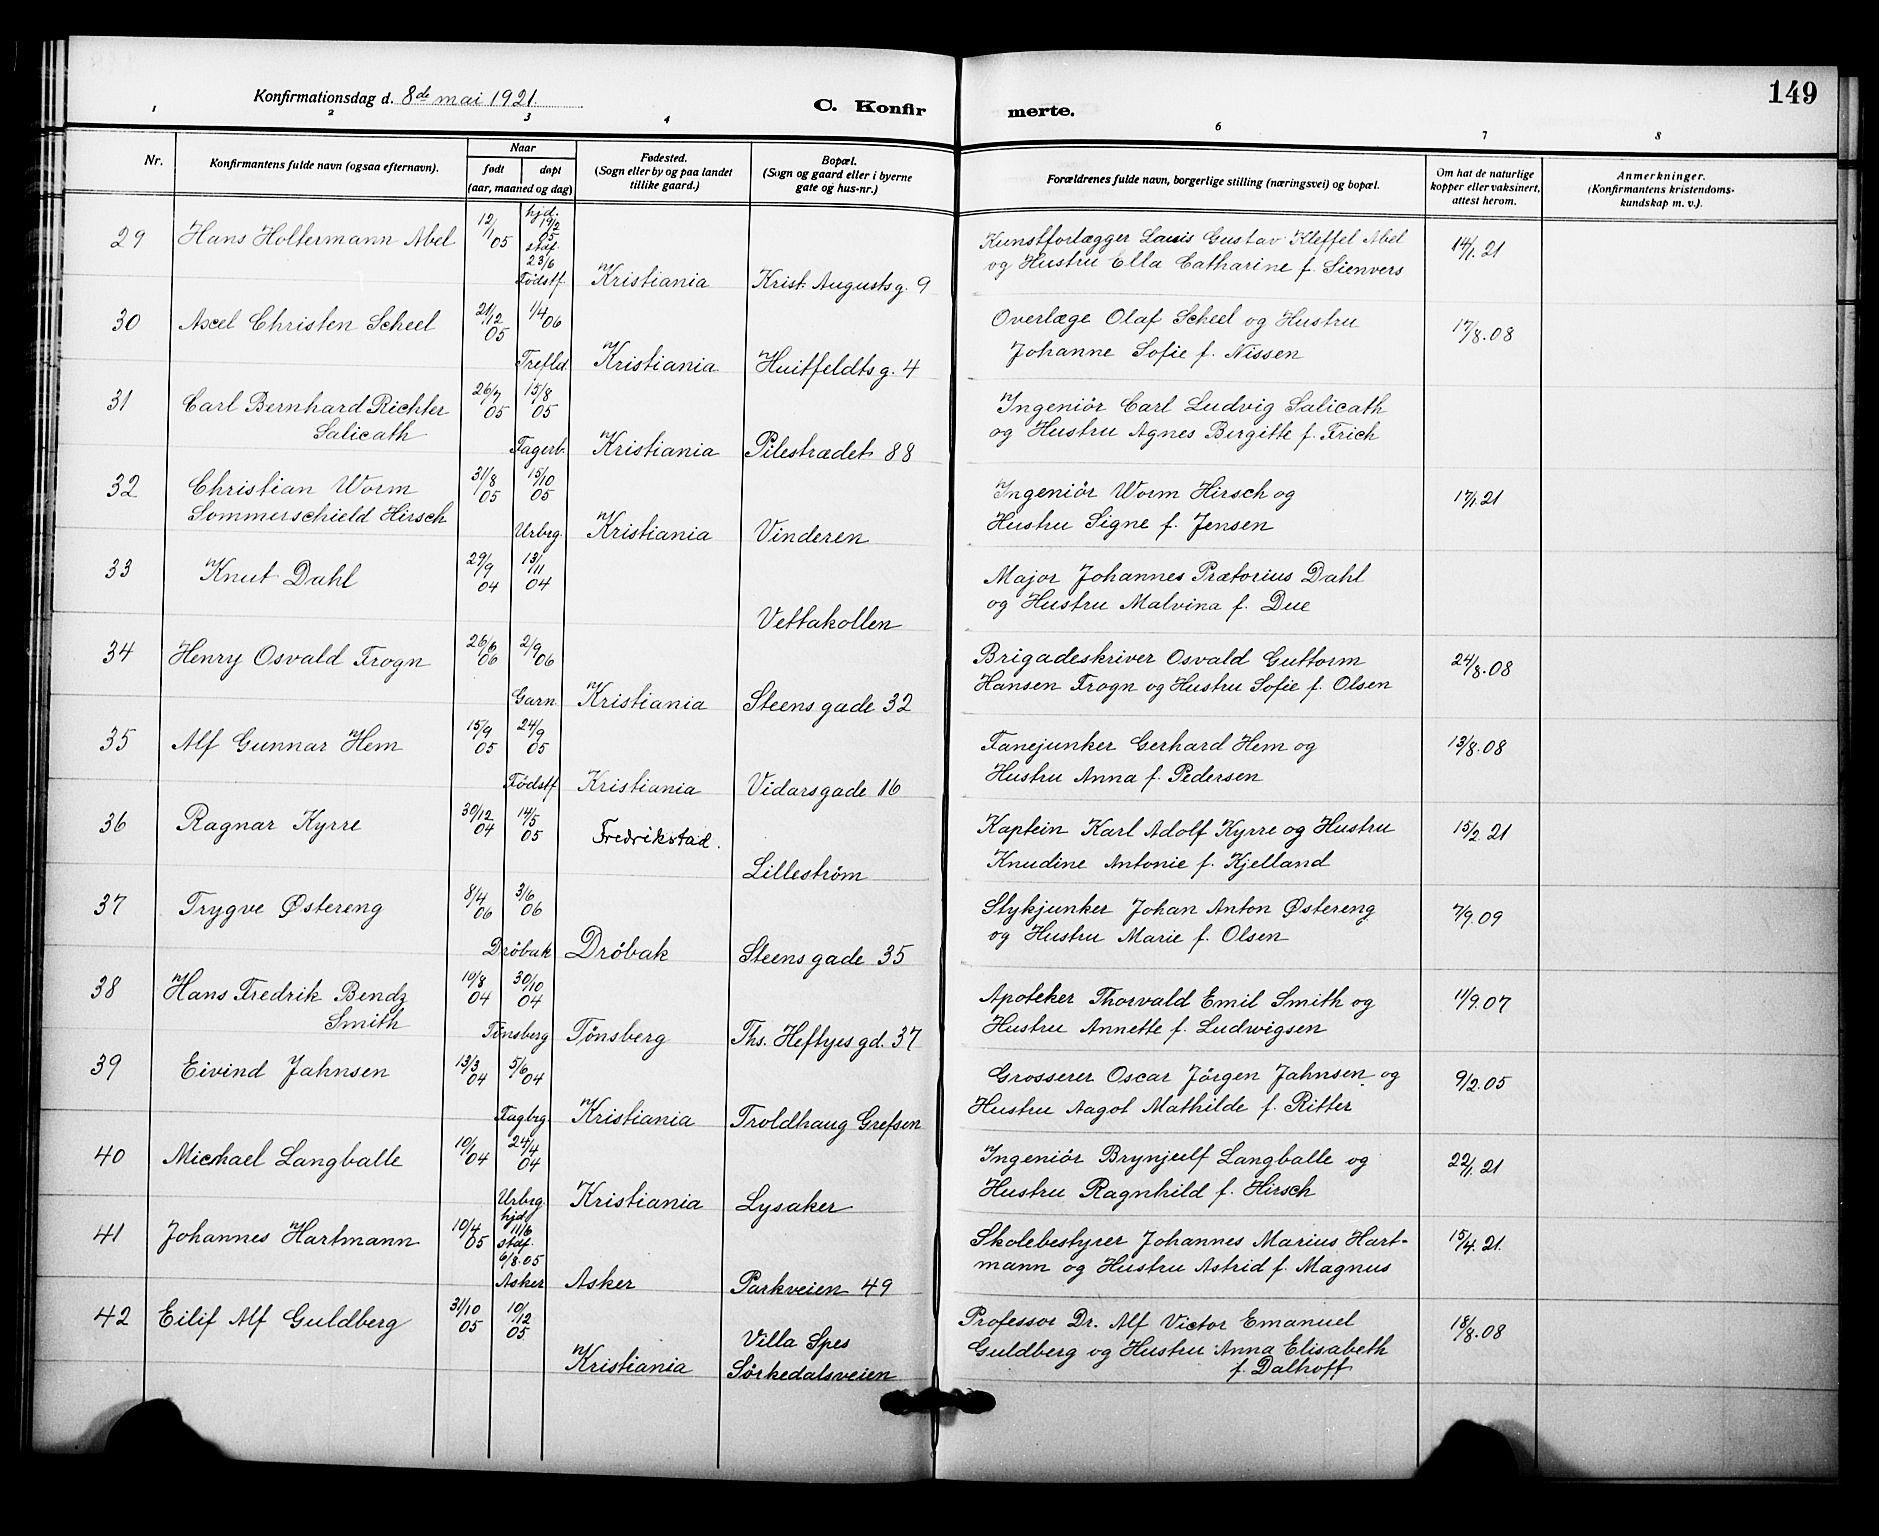 149
Konfirmationsdag d. 8de mai 1921.
C. Konfirmerte.
1 2 3 4 6 7 8
Nr.
Konfirmantens fulde navn (ogsaa efternavn).
Naar
født døpt
(aar, maaned og dag)
Fødested.
(Sogn eller by og paa landet
tillike gaard.)
Bopæl.
(Sogn og gaard eller i byerne
gate og hus-nr.)
Forældrenes fulde navn, borgerlige stilling (næringsvei) og bopæl.
Om hat de naturlige
kopper eller vaksinert,
attest herom.
Anmerkninger.
(Konfirmantens kristendoms-
kundskap m. v.).
29 Hans Holtermann Abel 12/1 05 hjd. 19/2 05 stdf. 23/6 Kunstforlægger Louis Gustav Kleffel Abel 14/1. 21
og Hustru Ella Catharine f. Sienvers
Födstf. Kristiania Krist. Augusts g. 9
30 Axel Christen Scheel 21/12 05 1/4 06 Overlæge Olaf Scheel og Hustru 17/8. 08
Johanne Sofie f. Nissen
Trefld. Kristiania Huitfeldts g. 4
31 Carl Bernhard Richter 26/7 05 15/8 05 Ingeniör Carl Ludvig Salicath
Salicath og Hustru Agnes Birgitte f. Frich
Fagerb. Kristiania Pilestrædet 88
32 Christian Worm 31/8 05 15/10 05 Ingeniör Worm Hirsch og 17/1 21
Sommerschield Hirsch Hustru Signe f. Jensen
Urbrg. Kristiania Vinderen
33 Knut Dahl 29/9 04 13/11 04 Major Johannes Prætorius Dahl
og Hustru Malvina f. Due
Vettakollen
34 Henry Osvald Frogn 26/6 06 2/9 06 Brigadeskriver Osvald Guttorm 24/8. 08
Hansen Frogn og Hustru Sofie f. Olsen
Garn Kristiania Steens gade 32
35 Alf Gunnar Hem 15/9 05 24/9 05 Fanejunker Gerhard Hem og 13/8. 08
Hustru Anna f. Pedersen
Födstf Kristiania Vidarsgade 16
36 Ragnar Kyrre 30/12 04 14/5 05 Fredrikstad. Kaptein Karl Adolf Kyrre og Hustru 15/2. 21
Knudine Antonie f. Kjelland
Lilleström
37 Trygve Østereng 8/4 06 3/6 06 Stykjunker Johan Anton Østereng 7/9. 09
og Hustru Marie f. Olsen
Dröbak Dröbak Steens gade 35
38 Hans Fredrik Bendz 10/8 04 30/10 04 Apoteker Thorvald Emil Smith og 11/9. 07
Smith Hustru Annette f. Ludwigsen
Tönsberg Tönsberg Ths. Heftyes gd. 37
39 Eivind Jahnsen 13/3 04 5/6 04 Grosserer Oscar Jörgen Jahnsen og 9/2. 05
Hustru Aagot Mathilde f. Ritter
Fagbrg. Kristiania Troldhaug Grefsen
40 Michael Langballe 10/1 04 24/4 04 Ingeniör Brynjulf Langballe og 22/1. 21
Hustru Ragnhild f. Hirsch
Urbrg Kristiania Lysaker
41 Johannes Hartmann 10/4 05 hjd. 11/6 stdf. 6/8. 05 Skolebestyrer Johannes Marius Hart- 15/4. 21.
mann og Hustru Astrid f. Magnus
Asker Asker Parkveien 49
42 Eilif Alf Guldberg 31/10 05 10/12 05 Professor Dr. Alf Victor Emanuel 18/8. 08
Villa Spes Guldberg og Hustru Anna Elisabeth
Kristiania Sörkedalsveien f. Dalhoff